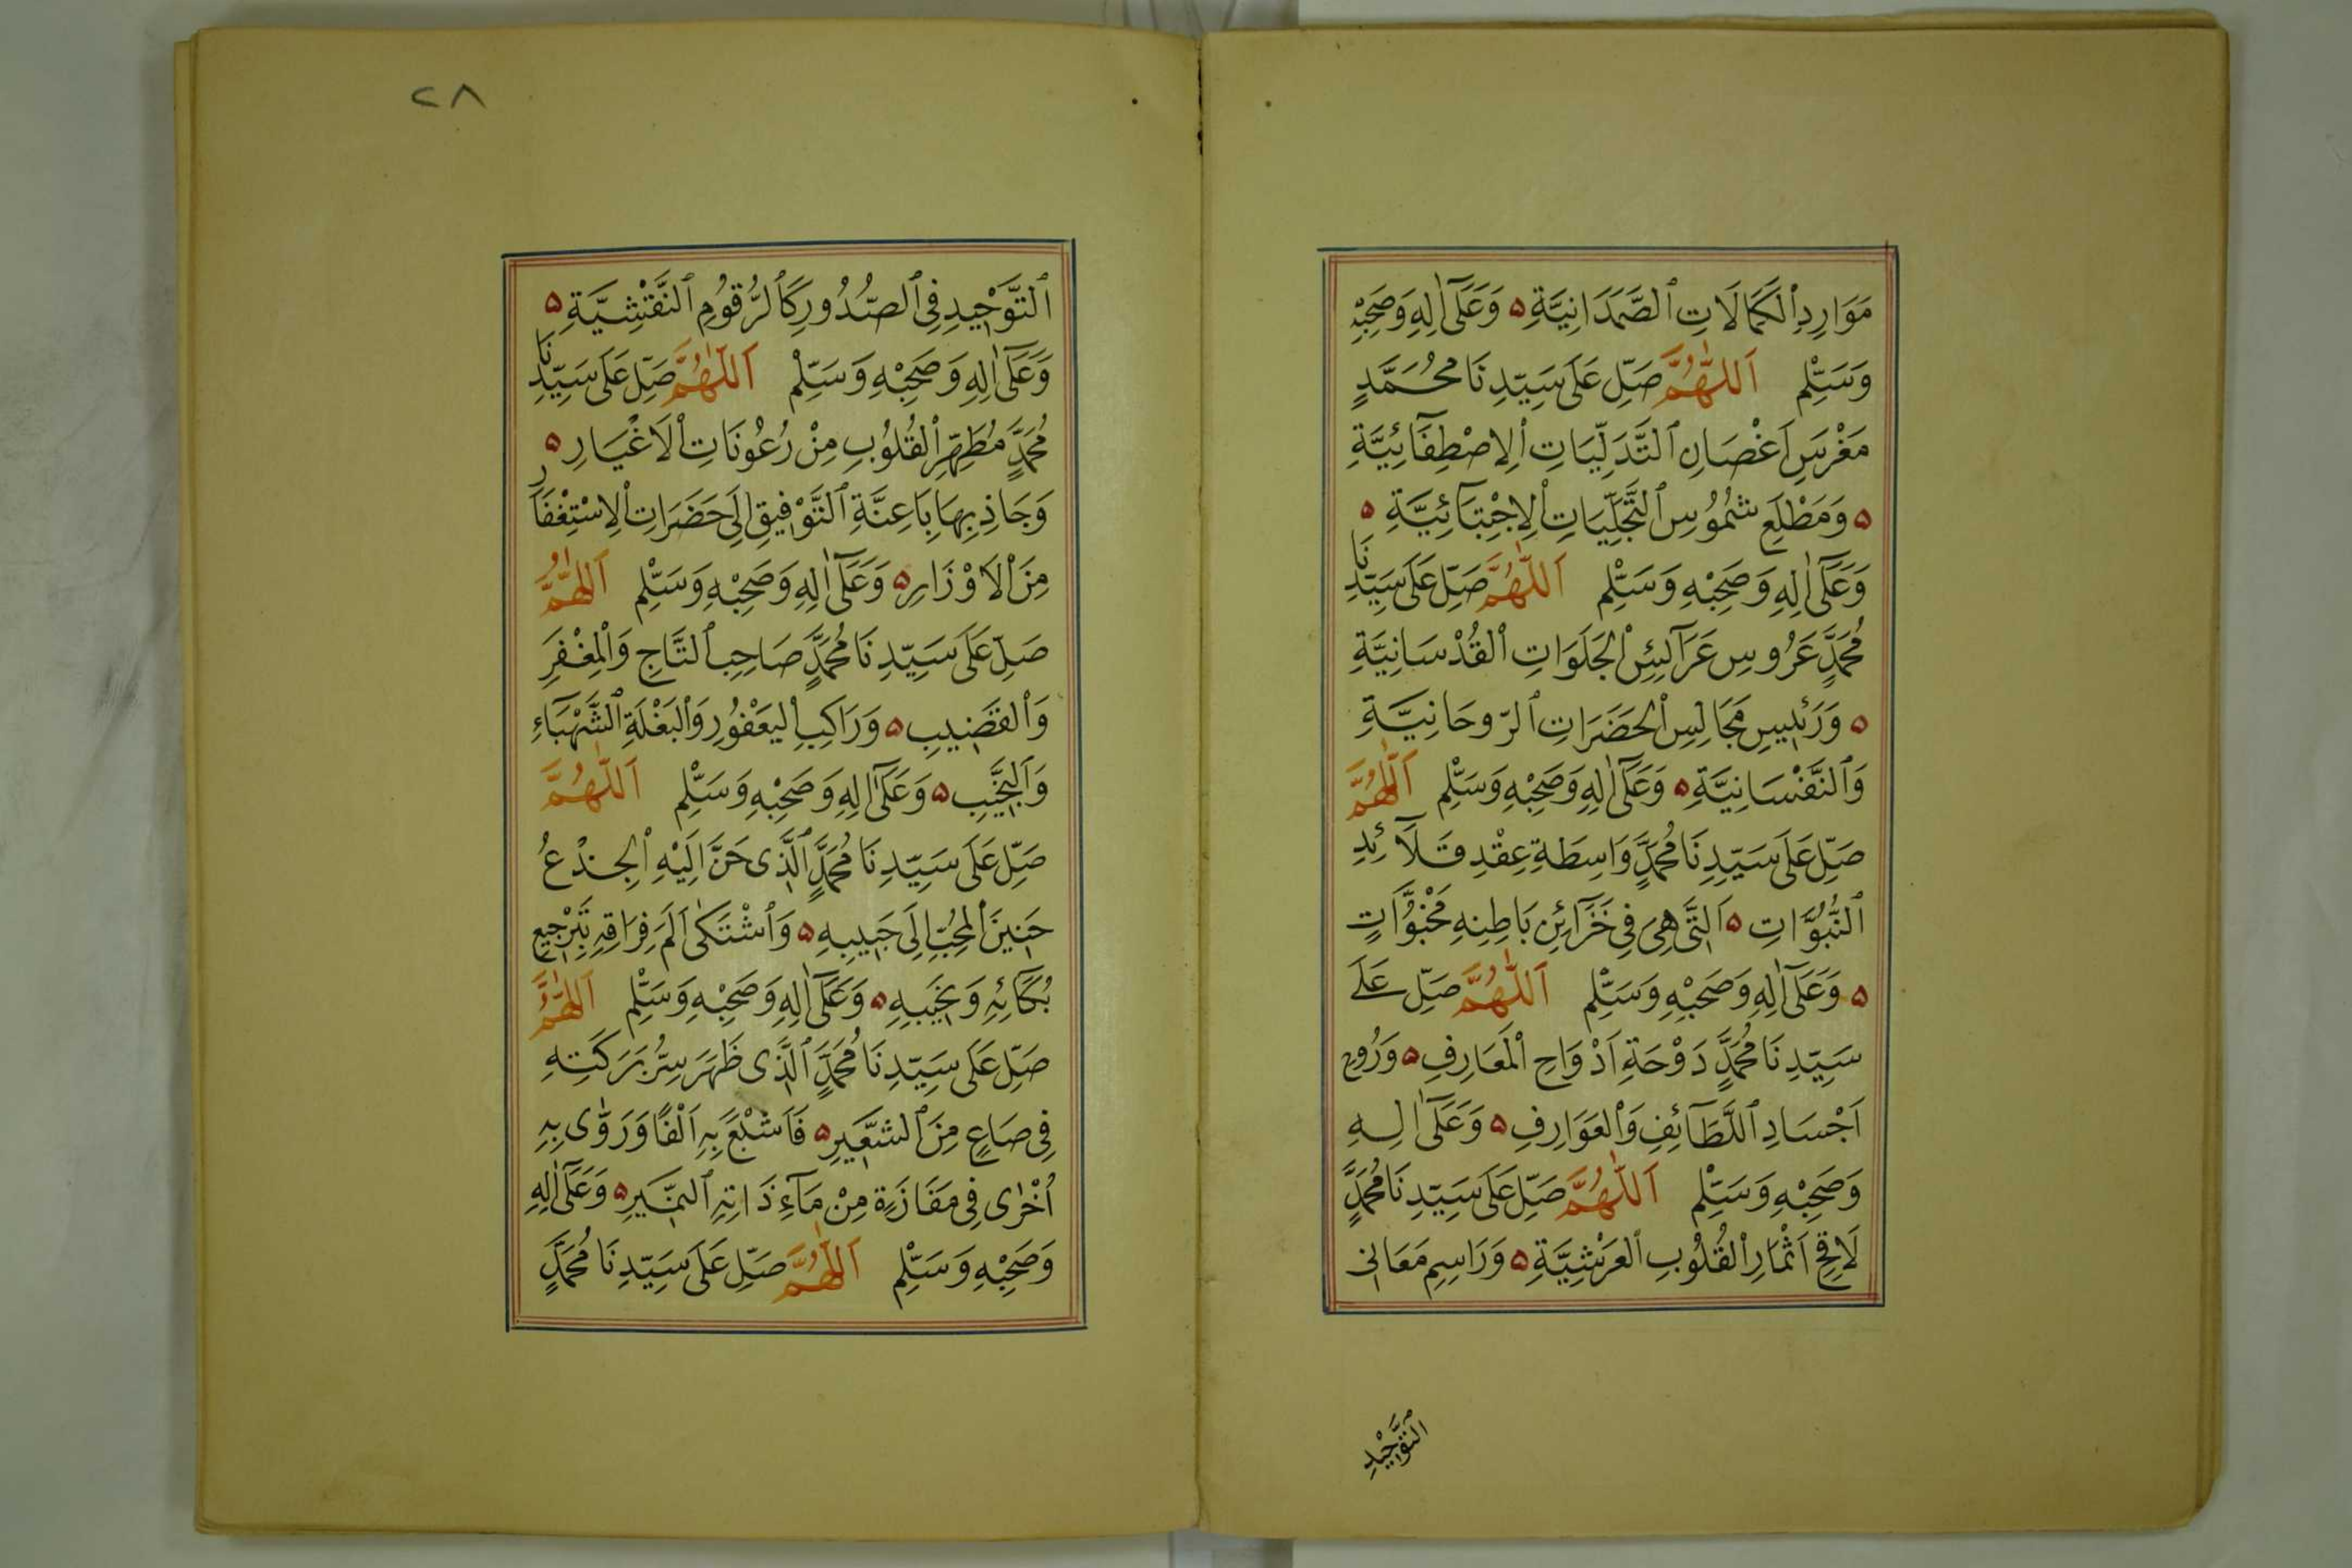 مَوَارِدِ ٱلْكَمَالَاتِ ٱلصَّمَدَانِيَّةِ ۵ وَعَلَىٰٓ اٰلِهِ وَصَحْبِهِ
وَسَلِّمْ اَللّٰهُمَّ صَلِّ عَلَى سَيِّدِنَا مُحَمَّدٍ
مَغْرَسِ اَغْصَانِ ٱلتَّدَلِّيَاتِ ٱلْاِصْطِفَائِيَّةِ
۵ وَمَطْلَعِ شُمُوسِ ٱلتَّجَلِّيَاتِ ٱلْاِجْتِبَآئِيَّةِ ۵
وَعَلَىٰٓ اٰلِهِ وَصَحْبِهِ وَسَلِّمْ اَللّٰهُمَّ صَلِّ عَلَى سَيِّدِنَا
مُحَمَّدٍ عَرُوسِ عَرَآئِسِ ٱلْجَلَوَاتِ ٱلْقُدْسَانِيَّةِ
۵ وَرَئِيسِ مَجَالِسِ ٱلْحَضَرَاتِ ٱلرّوحَانِيَّةِ
وَٱلنَّفْسَانِيَّةِ ۵ وَعَلَىٰٓ اٰلِهِ وَصَحْبِهِ وَسَلِّمْ اَللّٰهُمَّ
صَلِّ عَلَى سَيِّدِنَا مُحَمَّدٍ وَاسِطَةِ عِقْدِ قَلَآئِدِ
ٱلنُّبُوَّاتِ ۵ اَلَّتِى هِىَ فِى خَزَآئِنِ بَاطِنِهِ مَخْبُوَّاتٍ
۵ وَعَلَىٰٓ اٰلِهِ وَصَحْبِهِ وَسَلِّمْ اَللّٰهُمَّ صَلِّ عَلَى
سَيِّدِنَا مُحَمَّدٍ دَوْحَةِ اَدْوَاحِ ٱلْمَعَارِفِ ۵ وَرُوحِ
اَجْسَادِ ٱللَّطَآئِفِ وَٱلْعَوَارِفِ ۵ وَعَلَىٰٓ اٰلِهِ
وَصَحْبِهِ وَسَلِّمْ اَللّٰهُمَّ صَلِّ عَلَى سَيِّدِنَا مُحَمَّدٍ
لَاقِحِ اَثْمَارِ ٱلْقُلُوبِ ٱلْعَرْشِيَّةِ ۵ وَرَاسِمِ مَعَانِى
ٱلتَّوْحِيدِ
٢٨
ٱلتَّوْحِيدِ فِى ٱلصُّدُورِ كَٱلرُّقُومِ ٱلنَّقْشِيَّةِ ۵
وَعَلَىٰٓ اٰلِهِ وَصَحْبِهِ وَسَلِّمْ اَللّٰهُمَّ صَلِّ عَلَى سَيِّدِنَا
مُحَمَّدٍ مُطَهِّرِ ٱلْقُلُوبِ مِنْ رُعُونَاتِ ٱلْاَغْيَارِ ۵
وَجَاذِبِهَا بِاَعِنَّةِ ٱلتَّوْفِيقِ اِلَى حَضَرَاتِ ٱلْاِسْتِغْفَارِ
مِنَ ٱلْاَوْزَارِ ۵ وَعَلَىٰٓ اٰلِهِ وَصَحْبِهِ وَسَلِّمْ اَللّٰهُمَّ
صَلِّ عَلَى سَيِّدِنَا مُحَمَّدٍ صَاحِبِ ٱلتَّاجِ وَٱلْمِغْفَرِ
وَٱلْقَضِيبِ ۵ وَرَاكِبِ ٱلْيَعْفُورِ وَٱلْبَغْلَةِ ٱلشَّهْبَآءِ
وَٱلنَّجِيبِ ۵ وَعَلَىٰٓ اٰلِهِ وَصَحْبِهِ وَسَلِّمْ اَللّٰهُمَّ
صَلِّ عَلَى سَيِّدِنَا مُحَمَّدٍ ٱلَّذِى حَنَّ اِلَيْهِ ٱلْجِذْعُ
حَنِينَ ٱلْمُحِبِّ اِلَى حَبِيبِهِ ۵ وَٱشْتَكٰى اَلَمَ فِرَاقِهِ بِتَرْجِيعِ
بُكَآئِهِ وَنَحِيبِهِ ۵ وَعَلَىٰٓ اٰلِهِ وَصَحْبِهِ وَسَلِّمْ اَللّٰهُمَّ
صَلِّ عَلَى سَيِّدِنَا مُحَمَّدٍ ٱلَّذِى ظَهَرَ سِرُّ بَرَكَتِهِ
فِى صَاعٍ مِنَ ٱلشَّعِيرِ ۵ فَاَشْبَعَ بِهِ اَلْفًا وَرَوّٰى بِهِ
اُخْرٰى فِى مَفَازَةٍ مِنْ مَآءِ ذَاتِهِ ٱلنَّمِيرِ ۵ وَعَلَىٰٓ اٰلِهِ
وَصَحْبِهِ وَسَلِّمْ اَللّٰهُمَّ صَلِّ عَلَى سَيِّدِنَا مُحَمَّدٍ